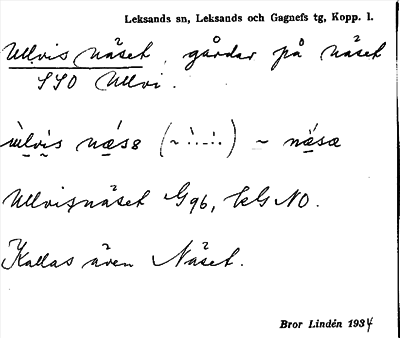 Leksands sn, Leksands och Gagnefs tg, Kopp. l.
Ullvis näset, gårdar på näset
SSO Ullvi.
ùlvìs næ̀s8 (~ ∴∴) ~ nǽsæ
Ullvisnäset G96, kG NO.
Kallas även Näset.
Bror Lindén 1934